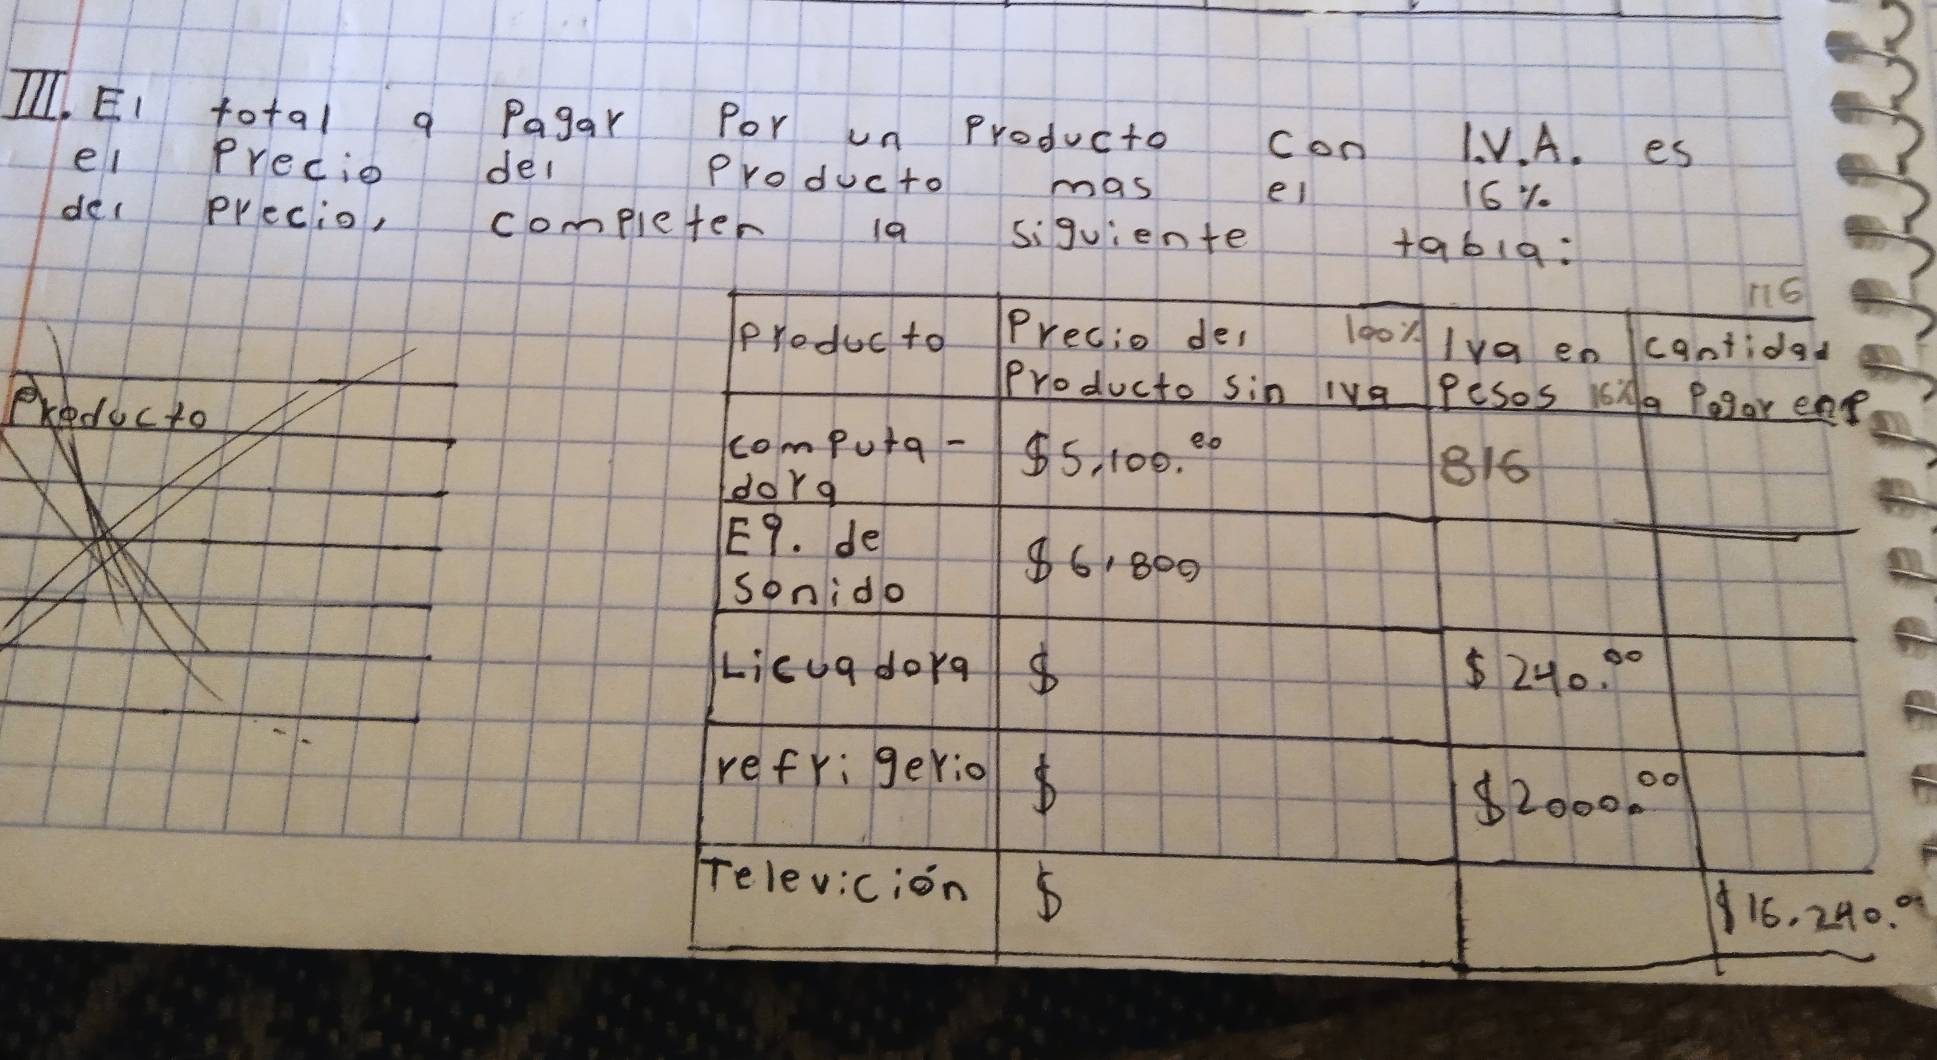 III. El total a Pagar Por un Producto con I.V.A. es
el Precio del Producto mas el 16%
del Precio, completen la siguiente tabla:
116
Producto
Precio del 100%
Producto sin iva
Iva en
Pesos 16%
cantidad
a Pagar en P
Producto
computa-
dora
$5,100.00
816
Eq. de
sonido
$6,800
Licuadora $ $240.00
refrigerio $ $2000.00
Televición $ $16.240.00